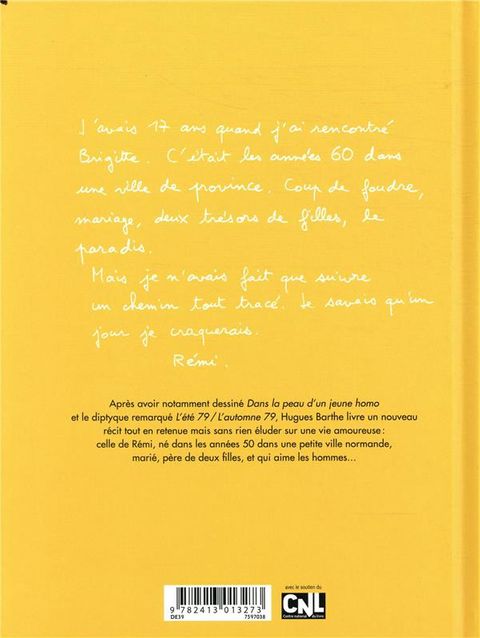 J'avais 17 ans quand j'ai rencontré
Brigitte. C'était les années 60 dans
une ville de province. Coup de foudre,
mariage, deux trésors de filles, le
paradis.
Mais je n'avais fait que suivre
un chemin tout tracé. Je savais qu'un
jour je craquerais.
Rémi.
Après avoir notamment dessiné Dans la peau d'un jeune homo
et le diptyque remarqué L'été 79 / L'automne 79, Hugues Barthe livre un nouveau
récit tout en retenue mais sans rien éluder sur une vie amoureuse :
celle de Rémi, né dans les années 50 dans une petite ville normande,
marié, père de deux filles, et qui aime les hommes...
avec le soutien du
CNL
Centre national du livre
9 782413 013273
DE39 7597038